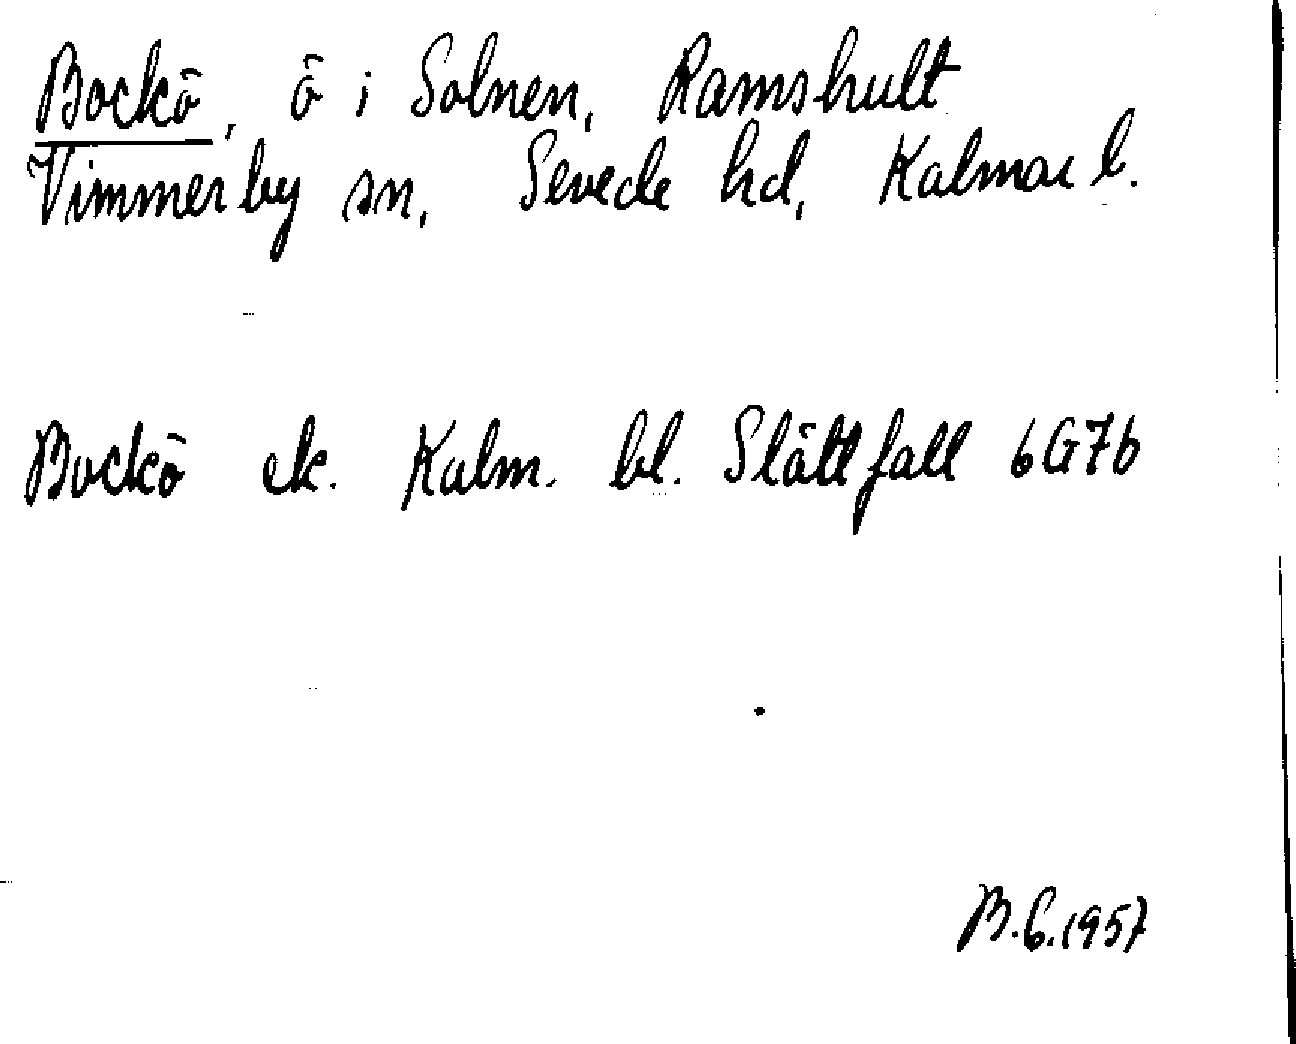 Bockö, ö i Solnen, Ramshult
Vimmerby sn, Sevede hd, Kalmar l.
Bockö ek. Kalm. bl. Slättfall 6G7b
B.G.1957